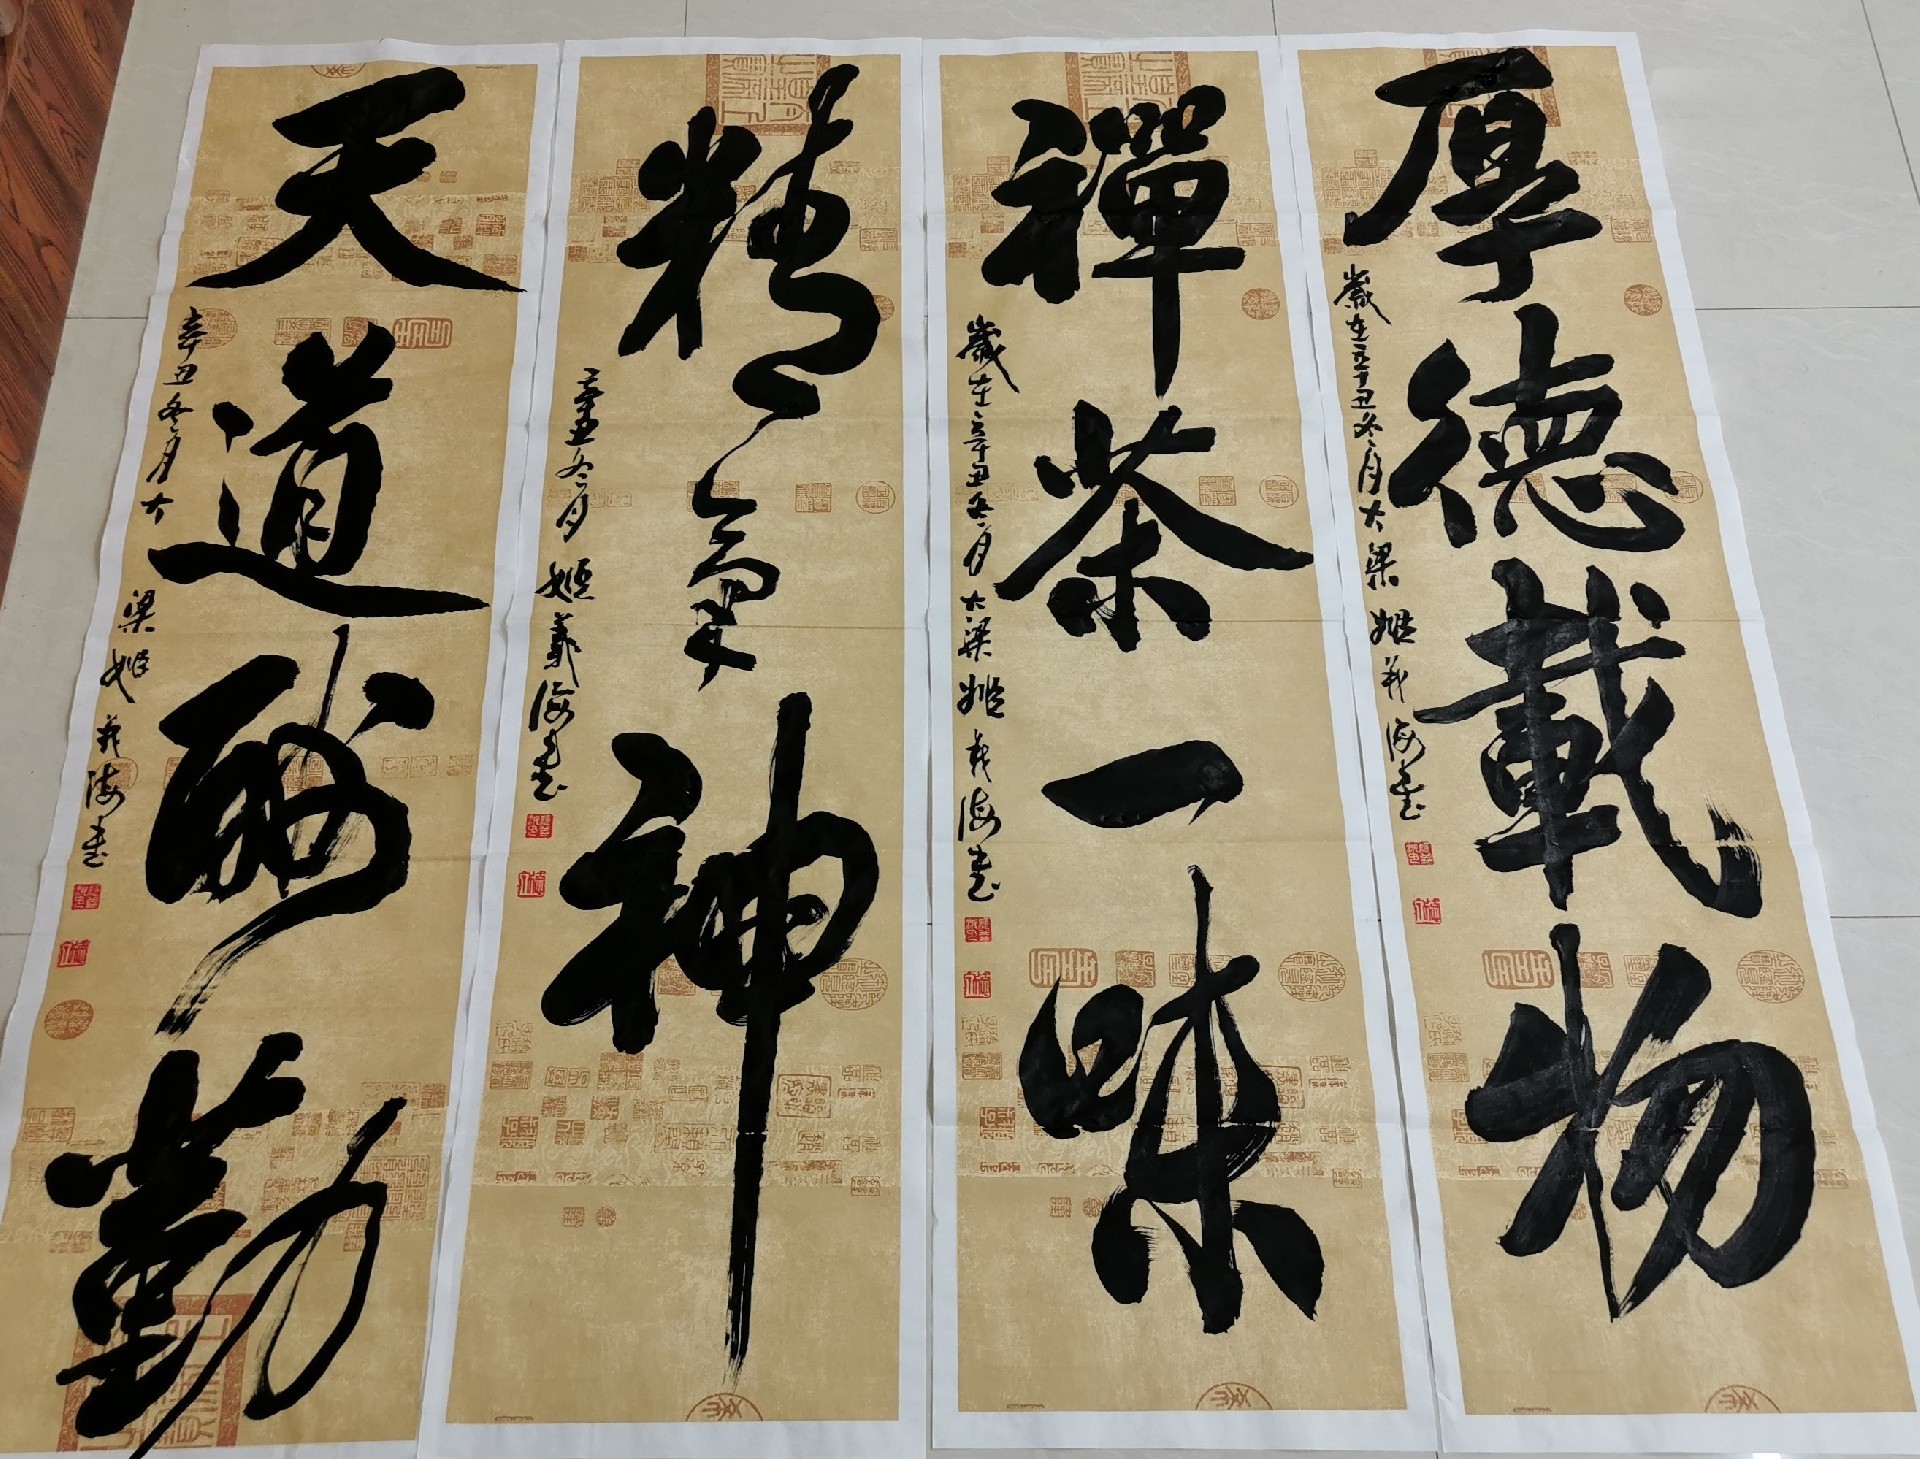 厚德載物
歲在辛丑冬月大梁姬義海書
禪茶一味
歲在辛丑冬月大梁姬義海書
精氣神
辛丑冬月姬義海書
天道酬勤
辛丑冬月大梁姬義海書